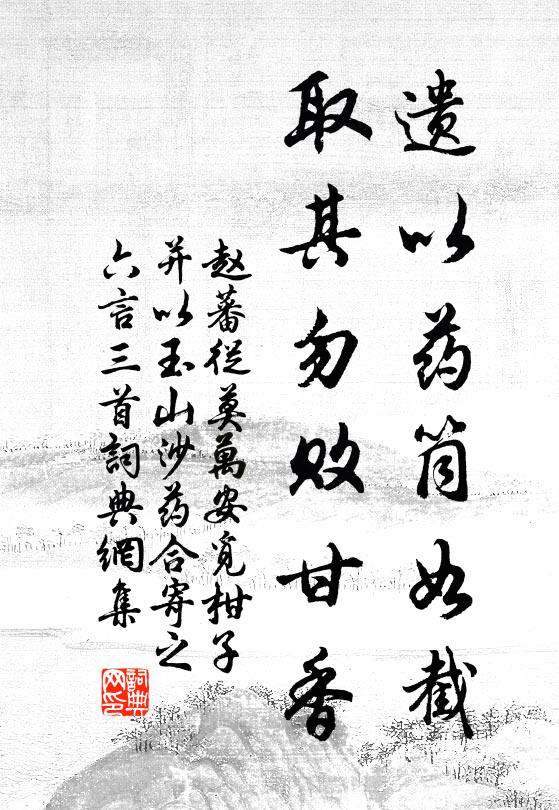 遗以药筒如截
取其勿败甘香
赵蕃從莫萬安覓柑子
并以玉山沙药合寄之
六言三首詞典網集
詞典
网印